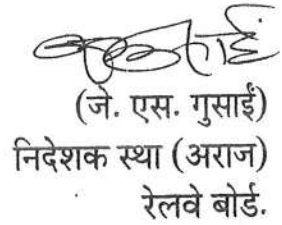 (जे. एस. गुसाईं)
निदेशक स्था (अराज)
रेलवे बोर्ड.